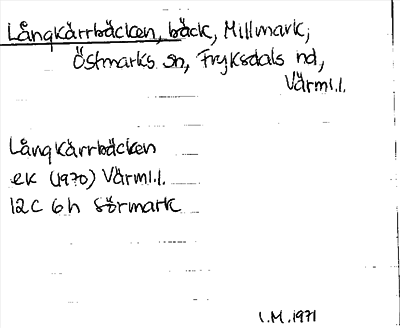 Långkärrbäcken, bäck, Millmark,
Östmarks sn, Fryksdals hd,
Värml.l.
Långkärrbäcken
ek (1970) Värml.l.
12C 6h Sörmark
I.M. 1971